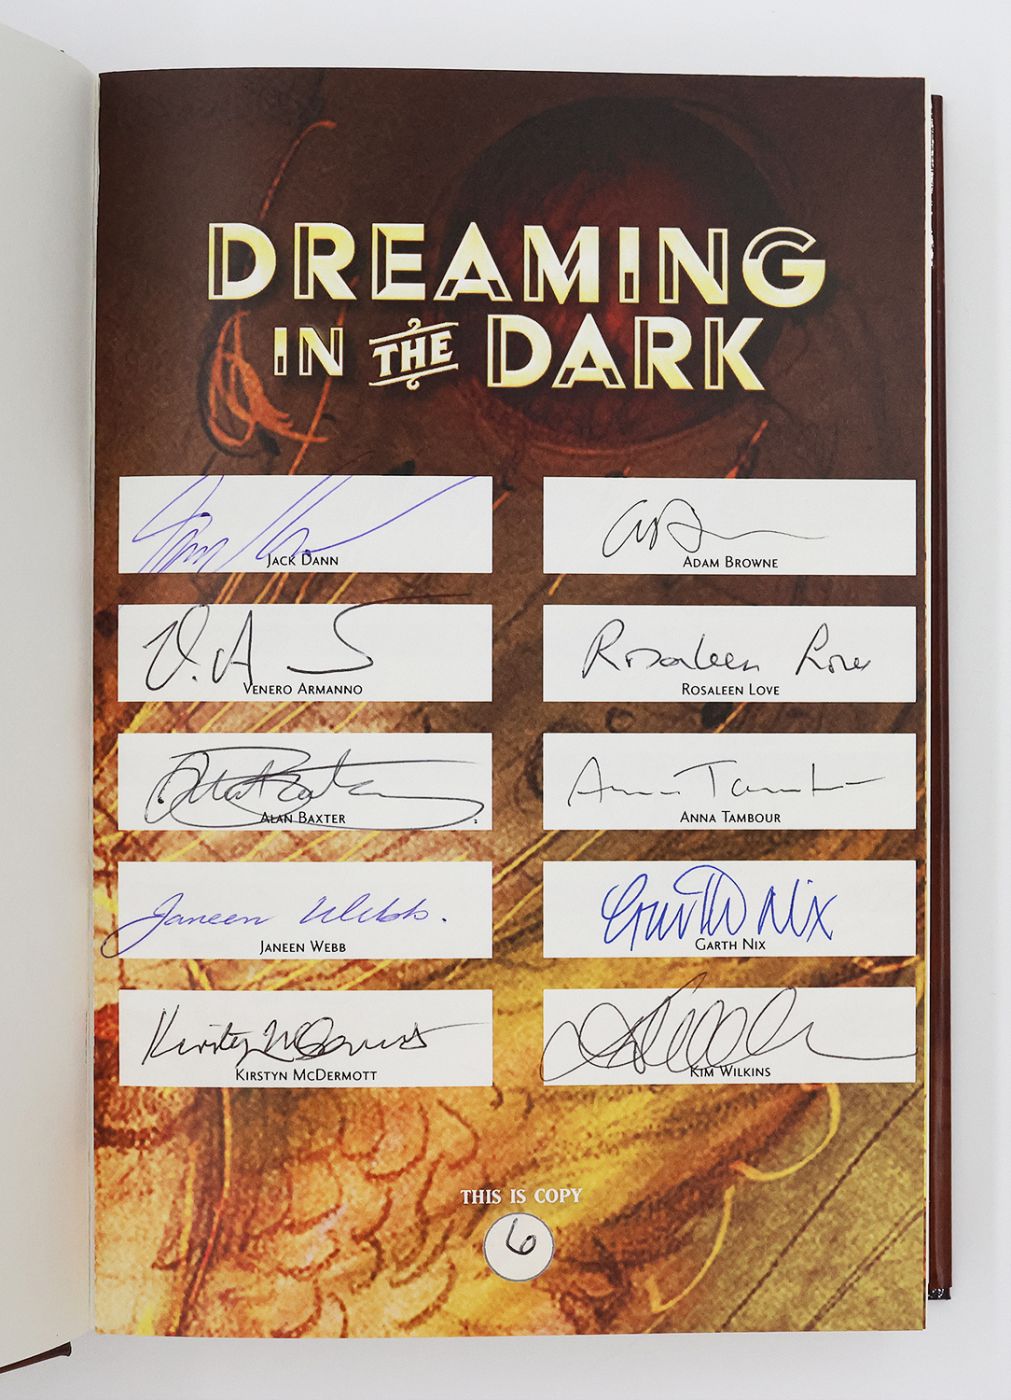 DREAMING
IN THE DARK
Jack Dann
JACK DANN
ADAM BROWNE
V. A
VENERO ARMANNO
Rosaleen Love
ROSALEEN LOVE
Alan Baxter
ALAN BAXTER
Anna Tambour
ANNA TAMBOUR
Janeen Webb.
JANEEN WEBB
Garth Nix
GARTH NIX
Kirstyn McDermott
KIRSTYN MCDERMOTT
KIM WILKINS
THIS IS COPY
6